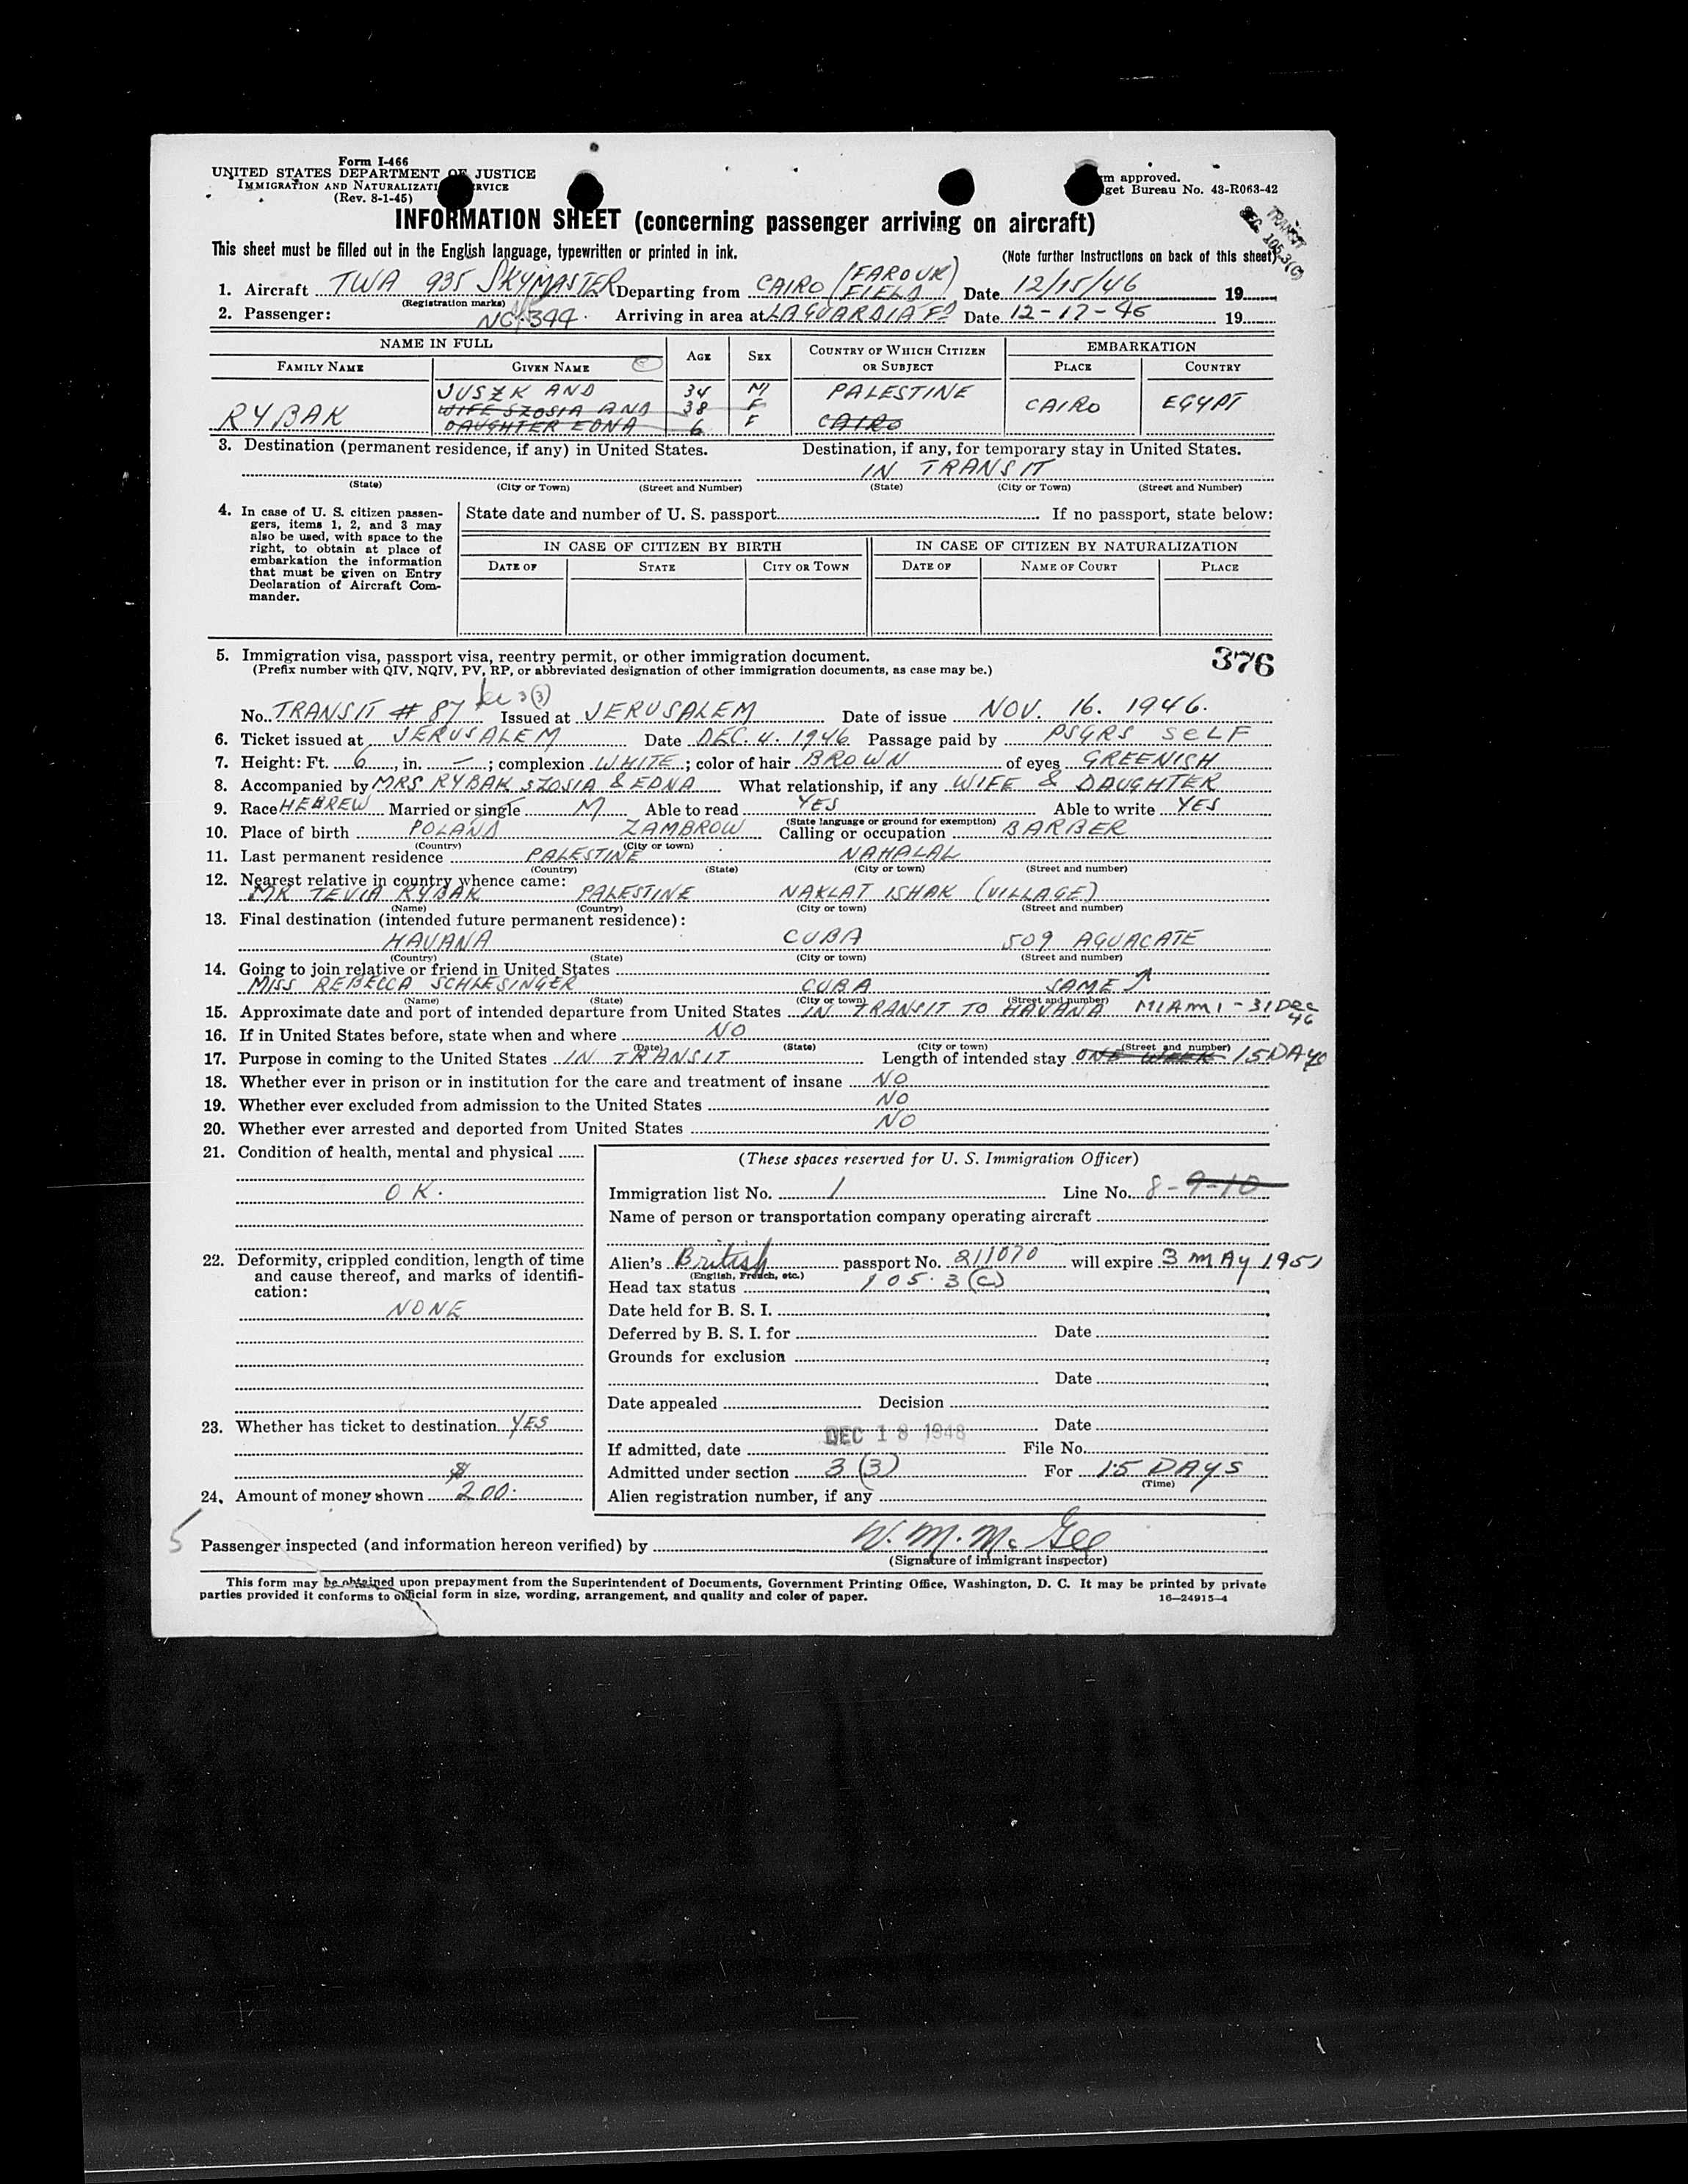 Form I-466
UNITED STATES DEPARTMENT OF JUSTICE
IMMIGRATION AND NATURALIZATI RVICE
(Rev. 8-1-45)
m approved.
get Bureau No. 43-R063-42
INFORMATION SHEET (concerning passenger arriving on aircraft)
TRANSIT
SEC. 105.3(C)
This sheet must be filled out in the English language, typewritten or printed in ink. (Note further instructions on back of this sheet)
1. Aircraft TWA 935 SKYMASTER Departing from CAIRO (FAROUK FIELD) Date 12/15/46 19
(Registration marks)
2. Passenger: NC 344 Arriving in area at LAGUARDIA FD Date 12-17-46 19
NAME IN FULL AGE SEX COUNTRY OF WHICH CITIZEN OR SUBJECT EMBARKATION
FAMILY NAME GIVEN NAME PLACE COUNTRY
JUSZK AND 34 M PALESTINE
RYBAK WIFE SZOSIA AND 38 F CAIRO EGYPT
DAUGHTER EDNA 6 F CAIRO
3. Destination (permanent residence, if any) in United States. Destination, if any, for temporary stay in United States.
IN TRANSIT
(State) (City or Town) (Street and Number) (State) (City or Town) (Street and Number)
4. In case of U. S. citizen passen-
gers, items 1, 2, and 3 may
also be used, with space to the
right, to obtain at place of
embarkation the information
that must be given on Entry
Declaration of Aircraft Com-
mander.
State date and number of U. S. passport If no passport, state below:
IN CASE OF CITIZEN BY BIRTH IN CASE OF CITIZEN BY NATURALIZATION
DATE OF STATE CITY OR TOWN DATE OF NAME OF COURT PLACE
5. Immigration visa, passport visa, reentry permit, or other immigration document. 376
(Prefix number with QIV, NQIV, PV, RP, or abbreviated designation of other immigration documents, as case may be.)
3(3)
No. TRANSIT # 87 Issued at JERUSALEM Date of issue NOV. 16. 1946.
6. Ticket issued at JERUSALEM Date DEC. 4. 1946 Passage paid by PSGRS SELF
7. Height: Ft. 6, in. –; complexion WHITE; color of hair BROWN of eyes GREENISH
8. Accompanied by MRS RYBAK SZOSIA & EDNA What relationship, if any WIFE & DAUGHTER
9. Race HEBREW Married or single M Able to read YES Able to write YES
(State language or ground for exemption)
10. Place of birth POLAND ZAMBROW Calling or occupation BARBER
(Country) (City or town)
11. Last permanent residence PALESTINE NAHALAL
(Country) (State) (City or town) (Street and number)
12. Nearest relative in country whence came:
MR TEVIA RYBAK PALESTINE NAKLAT ISHAK (VILLAGE)
(Name) (Country) (City or town) (Street and number)
13. Final destination (intended future permanent residence):
HAVANA CUBA 509 AGUACATE
(Country) (State) (City or town) (Street and number)
14. Going to join relative or friend in United States
MISS REBECCA SCHLESINGER CUBA SAME
(Name) (State) (City or town) (Street and number)
15. Approximate date and port of intended departure from United States IN TRANSIT TO HAVANA MIAMI - 31 DEC 46
16. If in United States before, state when and where NO
(Date) (State) (City or town) (Street and number)
17. Purpose in coming to the United States IN TRANSIT Length of intended stay ONE WEEK 15 DAYS
18. Whether ever in prison or in institution for the care and treatment of insane NO
19. Whether ever excluded from admission to the United States NO
20. Whether ever arrested and deported from United States NO
21. Condition of health, mental and physical
OK.
22. Deformity, crippled condition, length of time
and cause thereof, and marks of identifi-
cation:
NONE
23. Whether has ticket to destination YES
24. Amount of money shown $ 200.
(These spaces reserved for U. S. Immigration Officer)
Immigration list No. 1 Line No. 8-9-10
Name of person or transportation company operating aircraft
Alien's British passport No. 211070 will expire 3 MAY 1951
(English, French, etc.)
Head tax status 105.3(C)
Date held for B. S. I.
Deferred by B. S. I. for Date
Grounds for exclusion
Date
Date appealed Decision
Date
If admitted, date DEC 18 1946 File No.
Admitted under section 3(3) For 15 DAYS
(Time)
Alien registration number, if any
5
Passenger inspected (and information hereon verified) by W. M. McGee
(Signature of immigrant inspector)
This form may be obtained upon prepayment from the Superintendent of Documents, Government Printing Office, Washington, D. C. It may be printed by private
parties provided it conforms to official form in size, wording, arrangement, and quality and color of paper. 16—24915-4